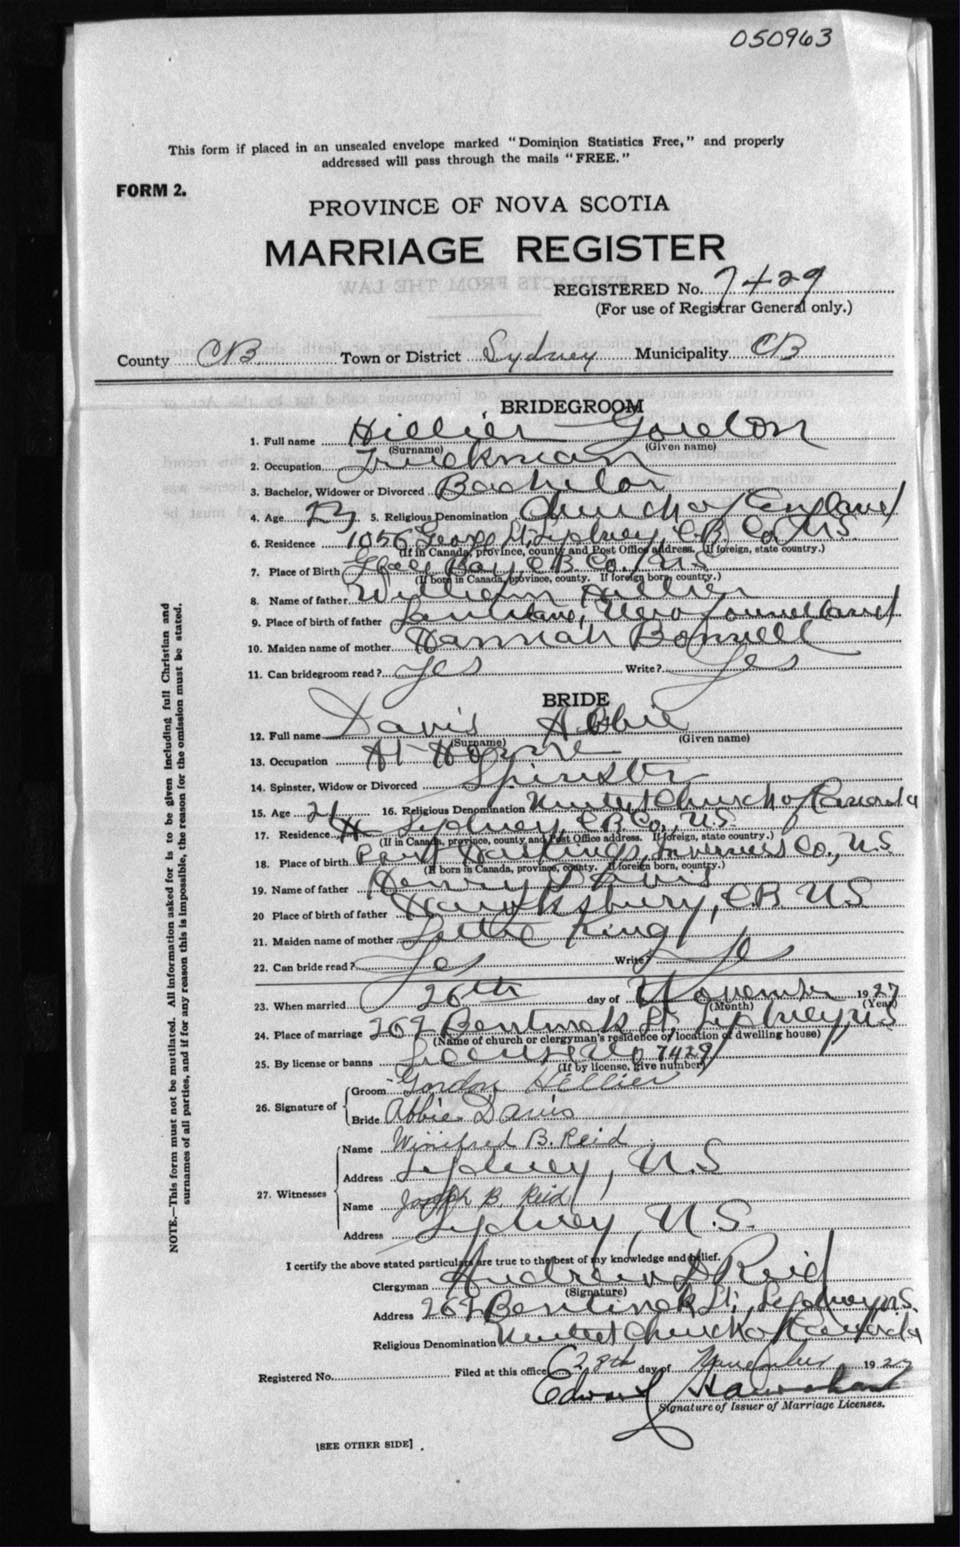 050963
This form if placed in an unsealed envelope marked "Dominion Statistics Free," and properly
addressed will pass through the mails "FREE."
FORM 2.
PROVINCE OF NOVA SCOTIA
MARRIAGE REGISTER
REGISTERED No. 7429
(For use of Registrar General only.)
County CB Town or District Sydney Municipality CB
BRIDEGROOM
1. Full name Hillier Gordon
(Surname) (Given name)
2. Occupation Truckman
3. Bachelor, Widower or Divorced Bachelor
4. Age 5. Religious Denomination Church of England
6. Residence 1056 George St, Sydney, C.B. Co., N.S.
(If in Canada, province, county and Post Office address. If foreign, state country.)
7. Place of Birth Glace Bay, C.B. Co., N.S.
(If born in Canada, province, county. If foreign born, country.)
8. Name of father William Hillier
9. Place of birth of father Newfoundland
10. Maiden name of mother Hannah Bonnell
11. Can bridegroom read? Yes Write? Yes
BRIDE
12. Full name Davis Abbie
(Surname) (Given name)
13. Occupation At Home
14. Spinster, Widow or Divorced Spinster
15. Age 21 16. Religious Denomination United Church of Canada
17. Residence Sydney, C.B. Co., N.S.
(If in Canada, province, county and Post Office address. If foreign, state country.)
18. Place of birth Port Hastings, Inverness Co., N.S.
(If born in Canada, province, county. If foreign born, country.)
19. Name of father Henry Davis
20 Place of birth of father Hawksbury, C.B. N.S.
21. Maiden name of mother King
22. Can bride read? Yes Write? Yes
23. When married 26th day of November 1927
(Month) (Year)
24. Place of marriage 262 Bentinck St, Sydney, N.S
(Name of church or clergyman's residence or location of dwelling house)
25. By license or banns License No 7429
(If by license, give number)
26. Signature of Groom Gordon Hillier
Bride Abbie Davis
27. Witnesses Name Winifred B. Reid
Address Sydney, N.S
Name Joseph B. Reid
Address Sydney, N.S.
I certify the above stated particulars are true to the best of my knowledge and belief.
Clergyman Andrew D Reid
(Signature)
Address 262 Bentinck St, Sydney N.S.
Religious Denomination United Church of Canada
Registered No. Filed at this office 28th day of November 1927
Edward
Signature of Issuer of Marriage Licenses.
[SEE OTHER SIDE]
NOTE.—This form must not be mutilated. All information asked for is to be given including full Christian and
surnames of all parties, and if for any reason this is impossible, the reason for the omission must be stated.